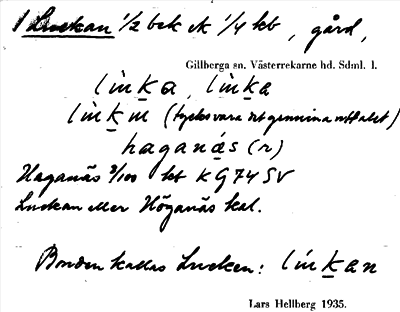 1 Luckan 1/2 bek ek 1/4 kb, gård,
Gillberga sn. Västerrekarne hd. Sdml. l.
lìǹk̲a, lìǹk̲a
lìǹk̲ɯ (tycks vara det genuina uttalet)
haganás (r)
Haganäs 3/100 kt KG74SV
Luckan eller Höganäs kal.
Bonden kallas Lucken: lìǹk̲an
Lars Hellberg 1935.